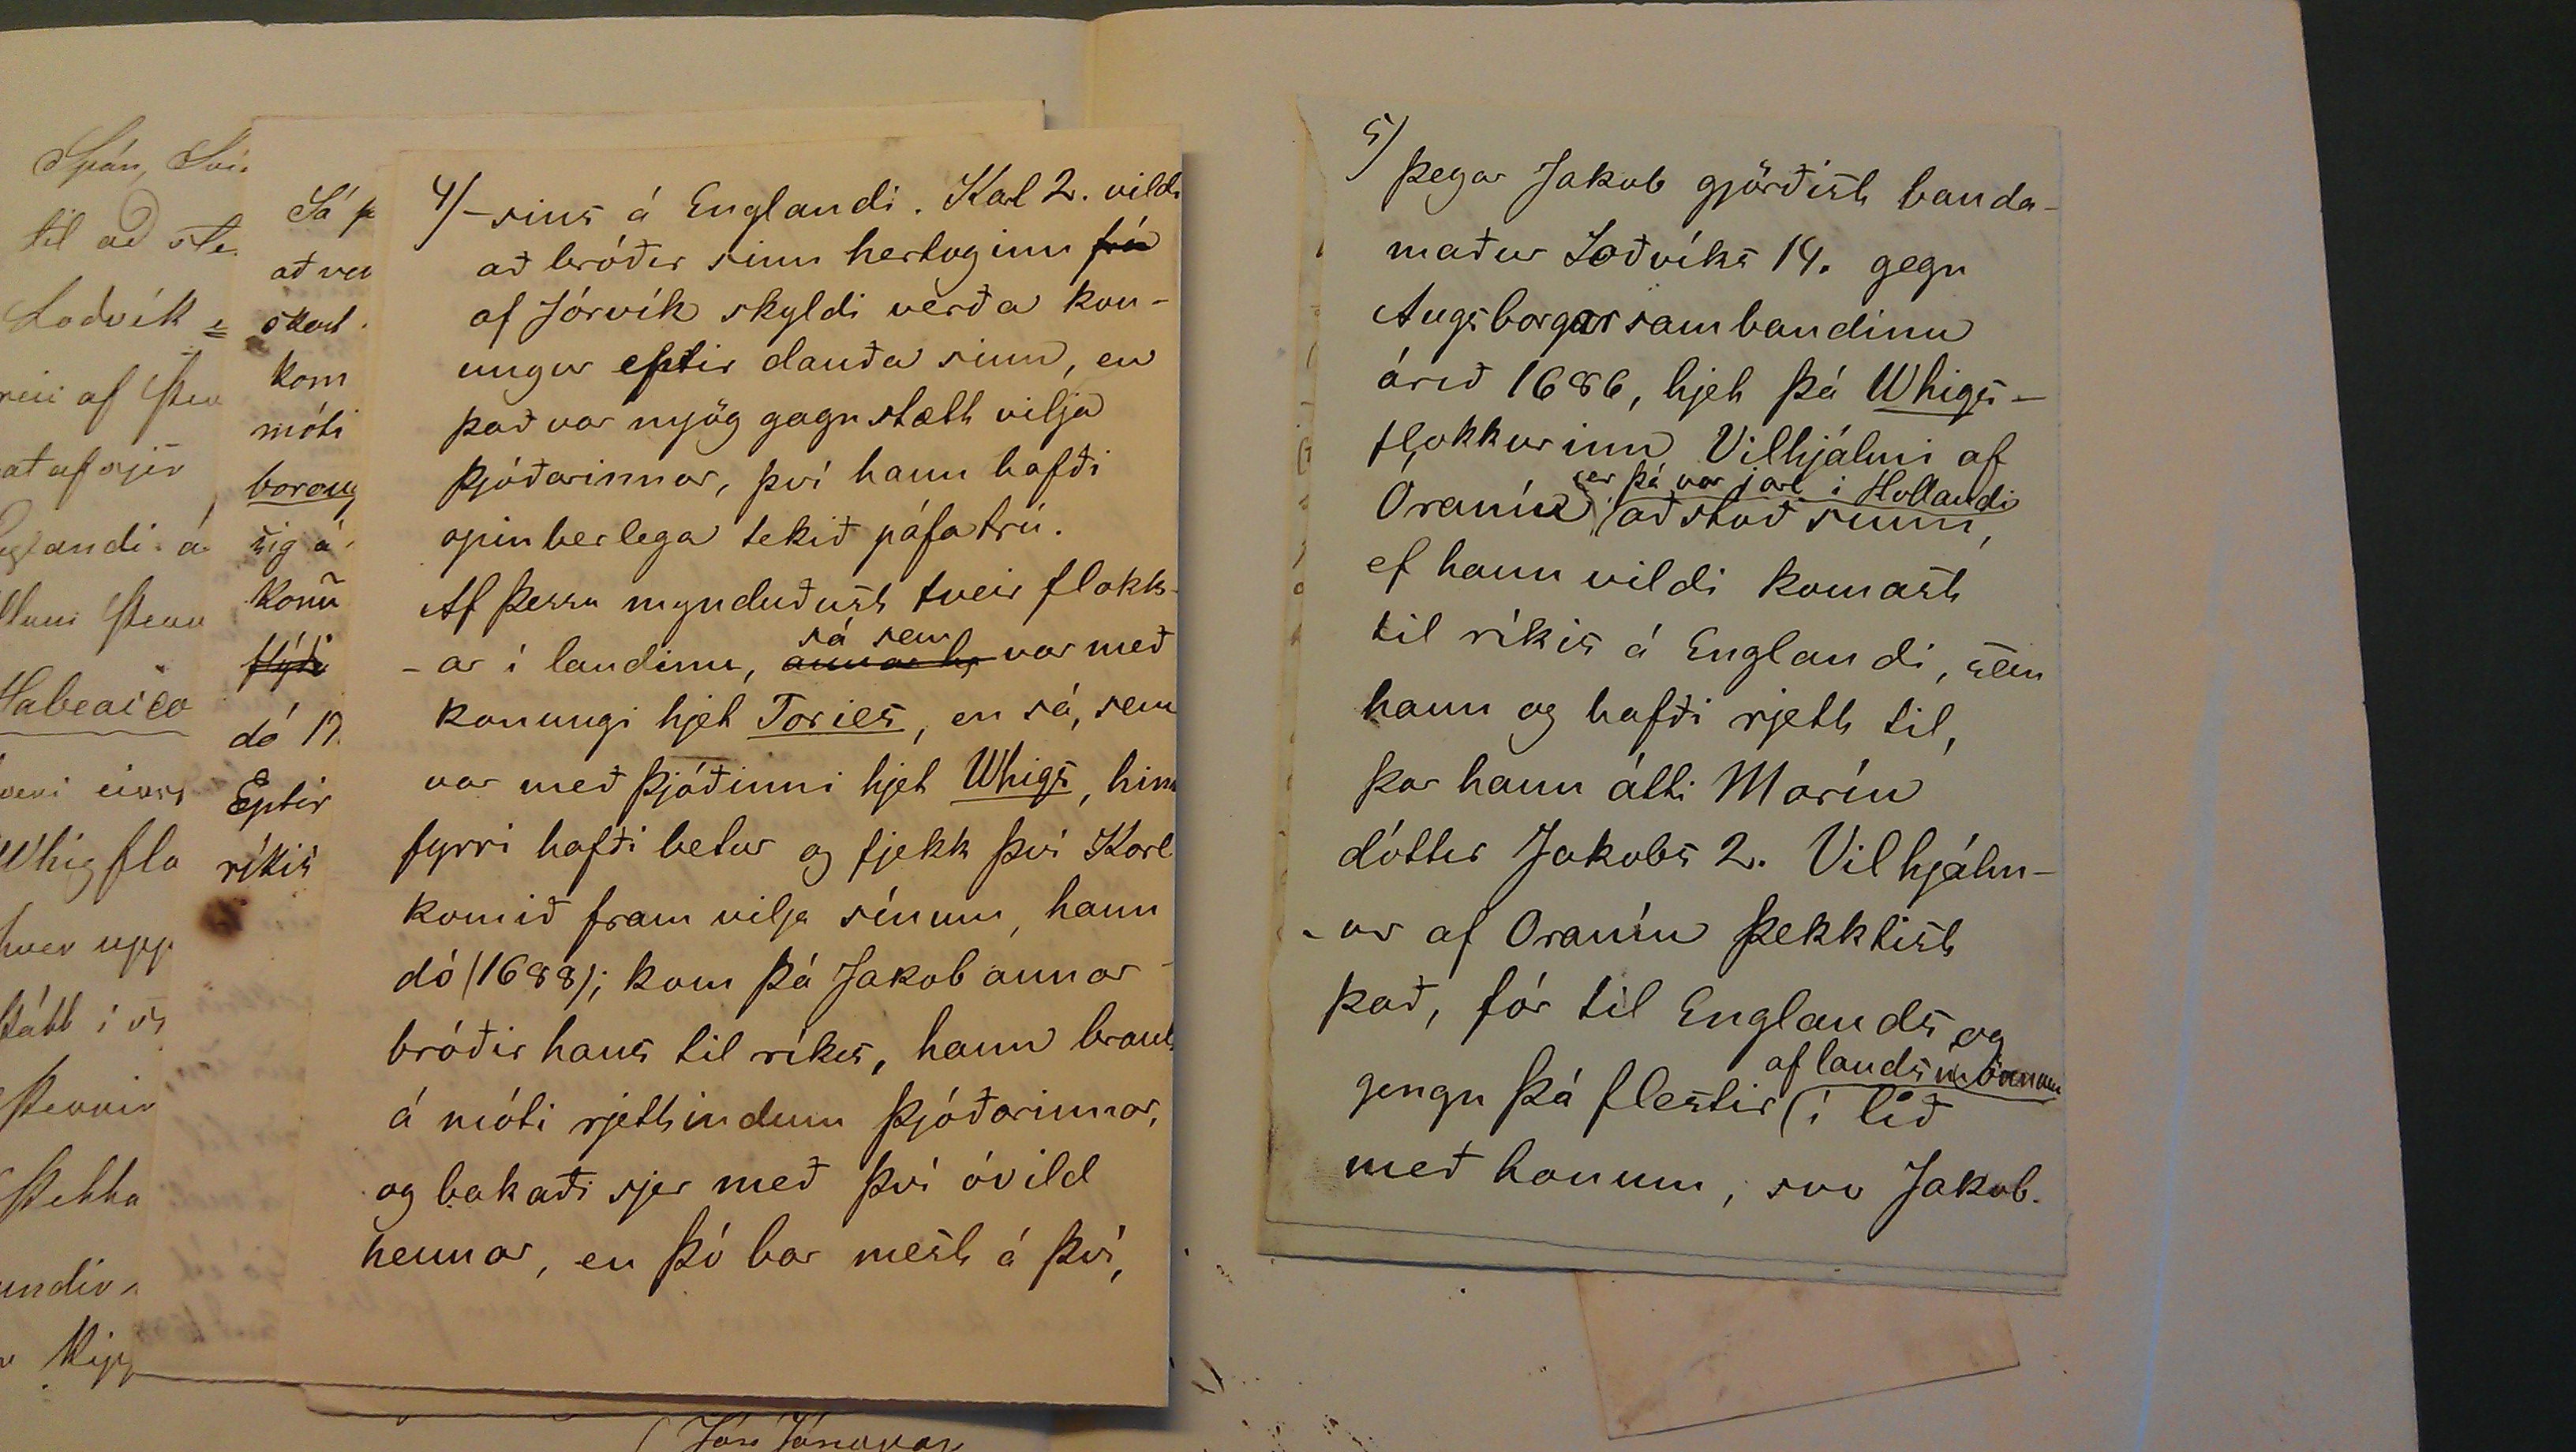 Spán, Sví
til að ste
Loðvík
af þen
at af sjer
Englandi á
Habeaico
eins
Whigfla
hver upp
þennin
þekka
undir
Sá þ
að ver
skort
kom
móti
boroug
sig á
konũ
flýði
dó 17
Eptir
ríkis
4/ -sins á Englandi. Karl 2. vildi
að bróðir sinn hertoginn frá
af Jórvík skyldi verða kon-
ungur eptir dauða sinn, en
það var mjög gagnstætt vilja
þjóðarinnar, því hann hafði
opinberlega tekið páfatrú.
Af þessu mynduðust tveir flokk-
sá sem
-ar í landinu, annar hj var með
konungi hjet Tories, en sá, sem
var með þjóðinni hjet Whigs, hinn
fyrri hafði betur og fjekk því Karl
komið fram vilja sínum, hann
dó (1688); kom þá Jakob annar
bróðir hans til ríkis, hann braut
á móti rjettindum þjóðarinnar,
og bakaði sjer með því óvild
hennar, en þó bar mest á því,
5/ þegar Jakob gjörðist banda-
maður Loðvíks 14. gegn
Augsborgarsambandinu
árið 1686, hjet þá Whigs-
flokkurinn Vilhjálmi af
er þá var jarl í Hollandi
Oraníu (aðstoð sinni,
ef hann vildi komast
til ríkis á Englandi, sem
hann og hafði rjett til,
þar hann átti Maríu
dóttir Jakobs 2. Vilhjálm-
-ur af Oraníu þekktist
það, fór til Englands og
af landsmönnum
gengu þá flestir (í lið
með honum, svo Jakob.
Jón Jónsson